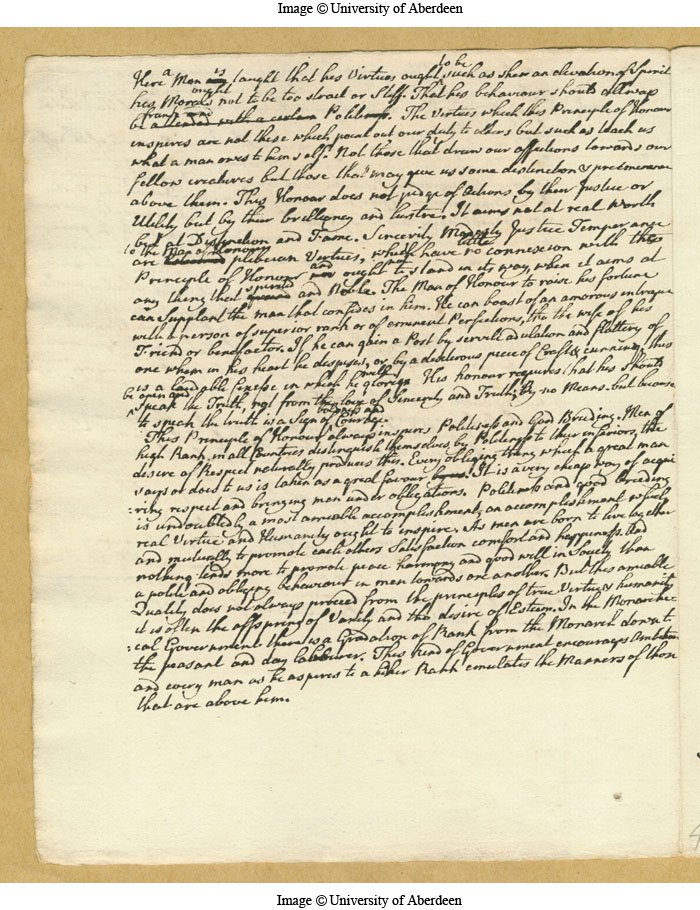 Image © University of Aberdeen
Here a Man is taught that his Virtues ought to be such as shew an elevation of Spirit
his Morals ought not to be too strict or Stiff. That his behaviour should allways
be frank and attended with a certain Politeness. The Virtues which this Principle of Honour
inspires are not these which point out our duty to others but such as teach us
what a man owes to himself. Not those that draw our affections towards our
fellow creatures but those that may give us some distinction & preeminence
above them. This Honour does not judge of Actions by their Justice or
Utility but by their brilliancy and lustre. It aims not at real Worth
but at Distinction and Fame. Sincerity Modesty Justice Temperance
to the Man of Honour
are plibeian Virtues, which have little or no connexion with this
Principle of Honour and ought not to stand in its way, when it aims at
any thing that is spirited and Noble. The Man of Honour to raise his fortune
can Supplant the man that confides in him. He can boast of an amorous intrigue
with a person of superior rank or of eminent Perfections, tho the wife of his
Friend or benefactor. If he can gain a Post by servile adulation and flattery of
one whom in his heart he despises, or by a dexterous piece of Craft & cunning, this
is a laudable finesse in which he glories. His honour requires that he should
be open and
speak the Truth, not from the love of Sincerity and Truth; By no Means. but because
to speak the truth is a Sign of boldness and Courage.
This Principle of Honour always inspires Politeness and Good Breeding. Men of
high Rank, in all Countries distinguish themselves, by Politeness to their inferiors, the
desire of Respect naturally produces this. Every obliging thing which a great man
says or does to us is taken as a great favour. It is a very cheap way of acqui
:ring respect and bringing men under obligations. Politeness and good Breeding
is undoubtedly a most amiable accomplishment; an accomplishment which
real Virtue and Humanity ought to inspire. As men are born to live together
and mutually to promote each others Satisfaction comfort and happyness. And
nothing tends more to promote peace harmony and good will in Society than
a polite and obliging behaviour in men towards one another. But this amiable
Quality does not always proceed from the principles of true Virtue & humanity
it is often the offspring of Vanity and the desire of Esteem. In the Monarchi
:cal Government there is a Gradation of Rank from the Monarch down to
the peasant and day labourer. This kind of Government encourages Ambition
and every man as he aspires to a higher Rank emulates the Manners of those
that are above him.
Image © University of Aberdeen